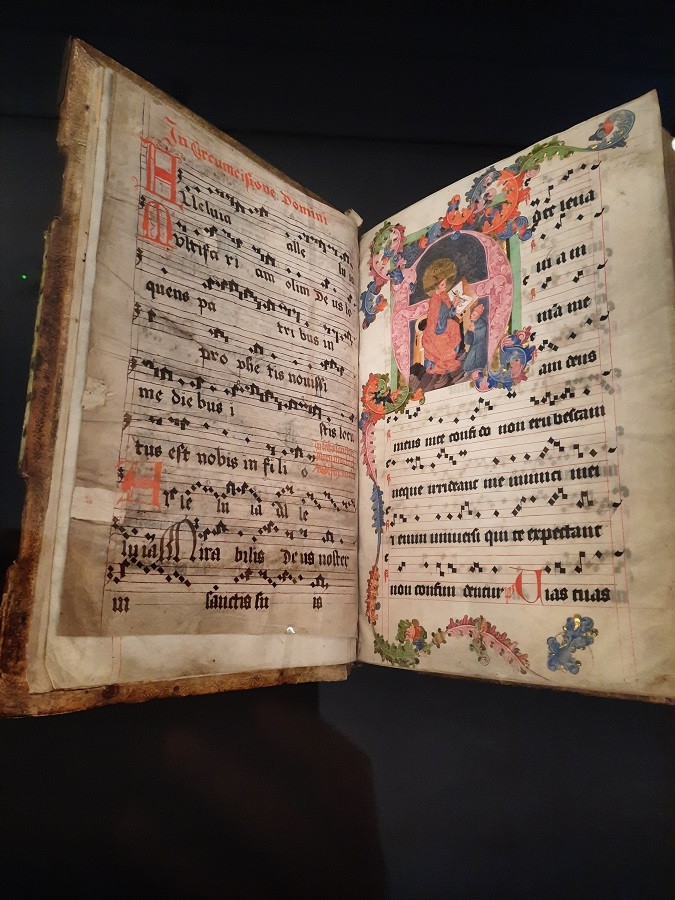 In Circumcisione Domini
Alleluia alle lu
Multifa ri am olim De us lo
quens pa tri bus in
pro phe tis nouissi
me die bus i stis locu
tus est nobis in fi li o
Al le lu ia Al le
lu ia Mira bilis De us noster
in sanctis su is
d te leua
ui a m
mā me
am deus
meus in te confi do non erubescam
neque irrideant me inimici mei
etenim uniuersi qui te expectant
non confun dentur ps Uias tuas